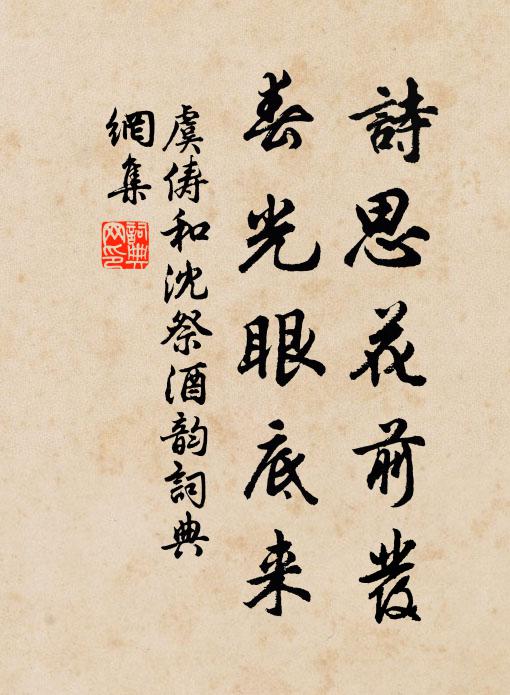 詩思花前發
春光眼底来
虞俦和沈祭酒韵詞典
網集
詞典
网印